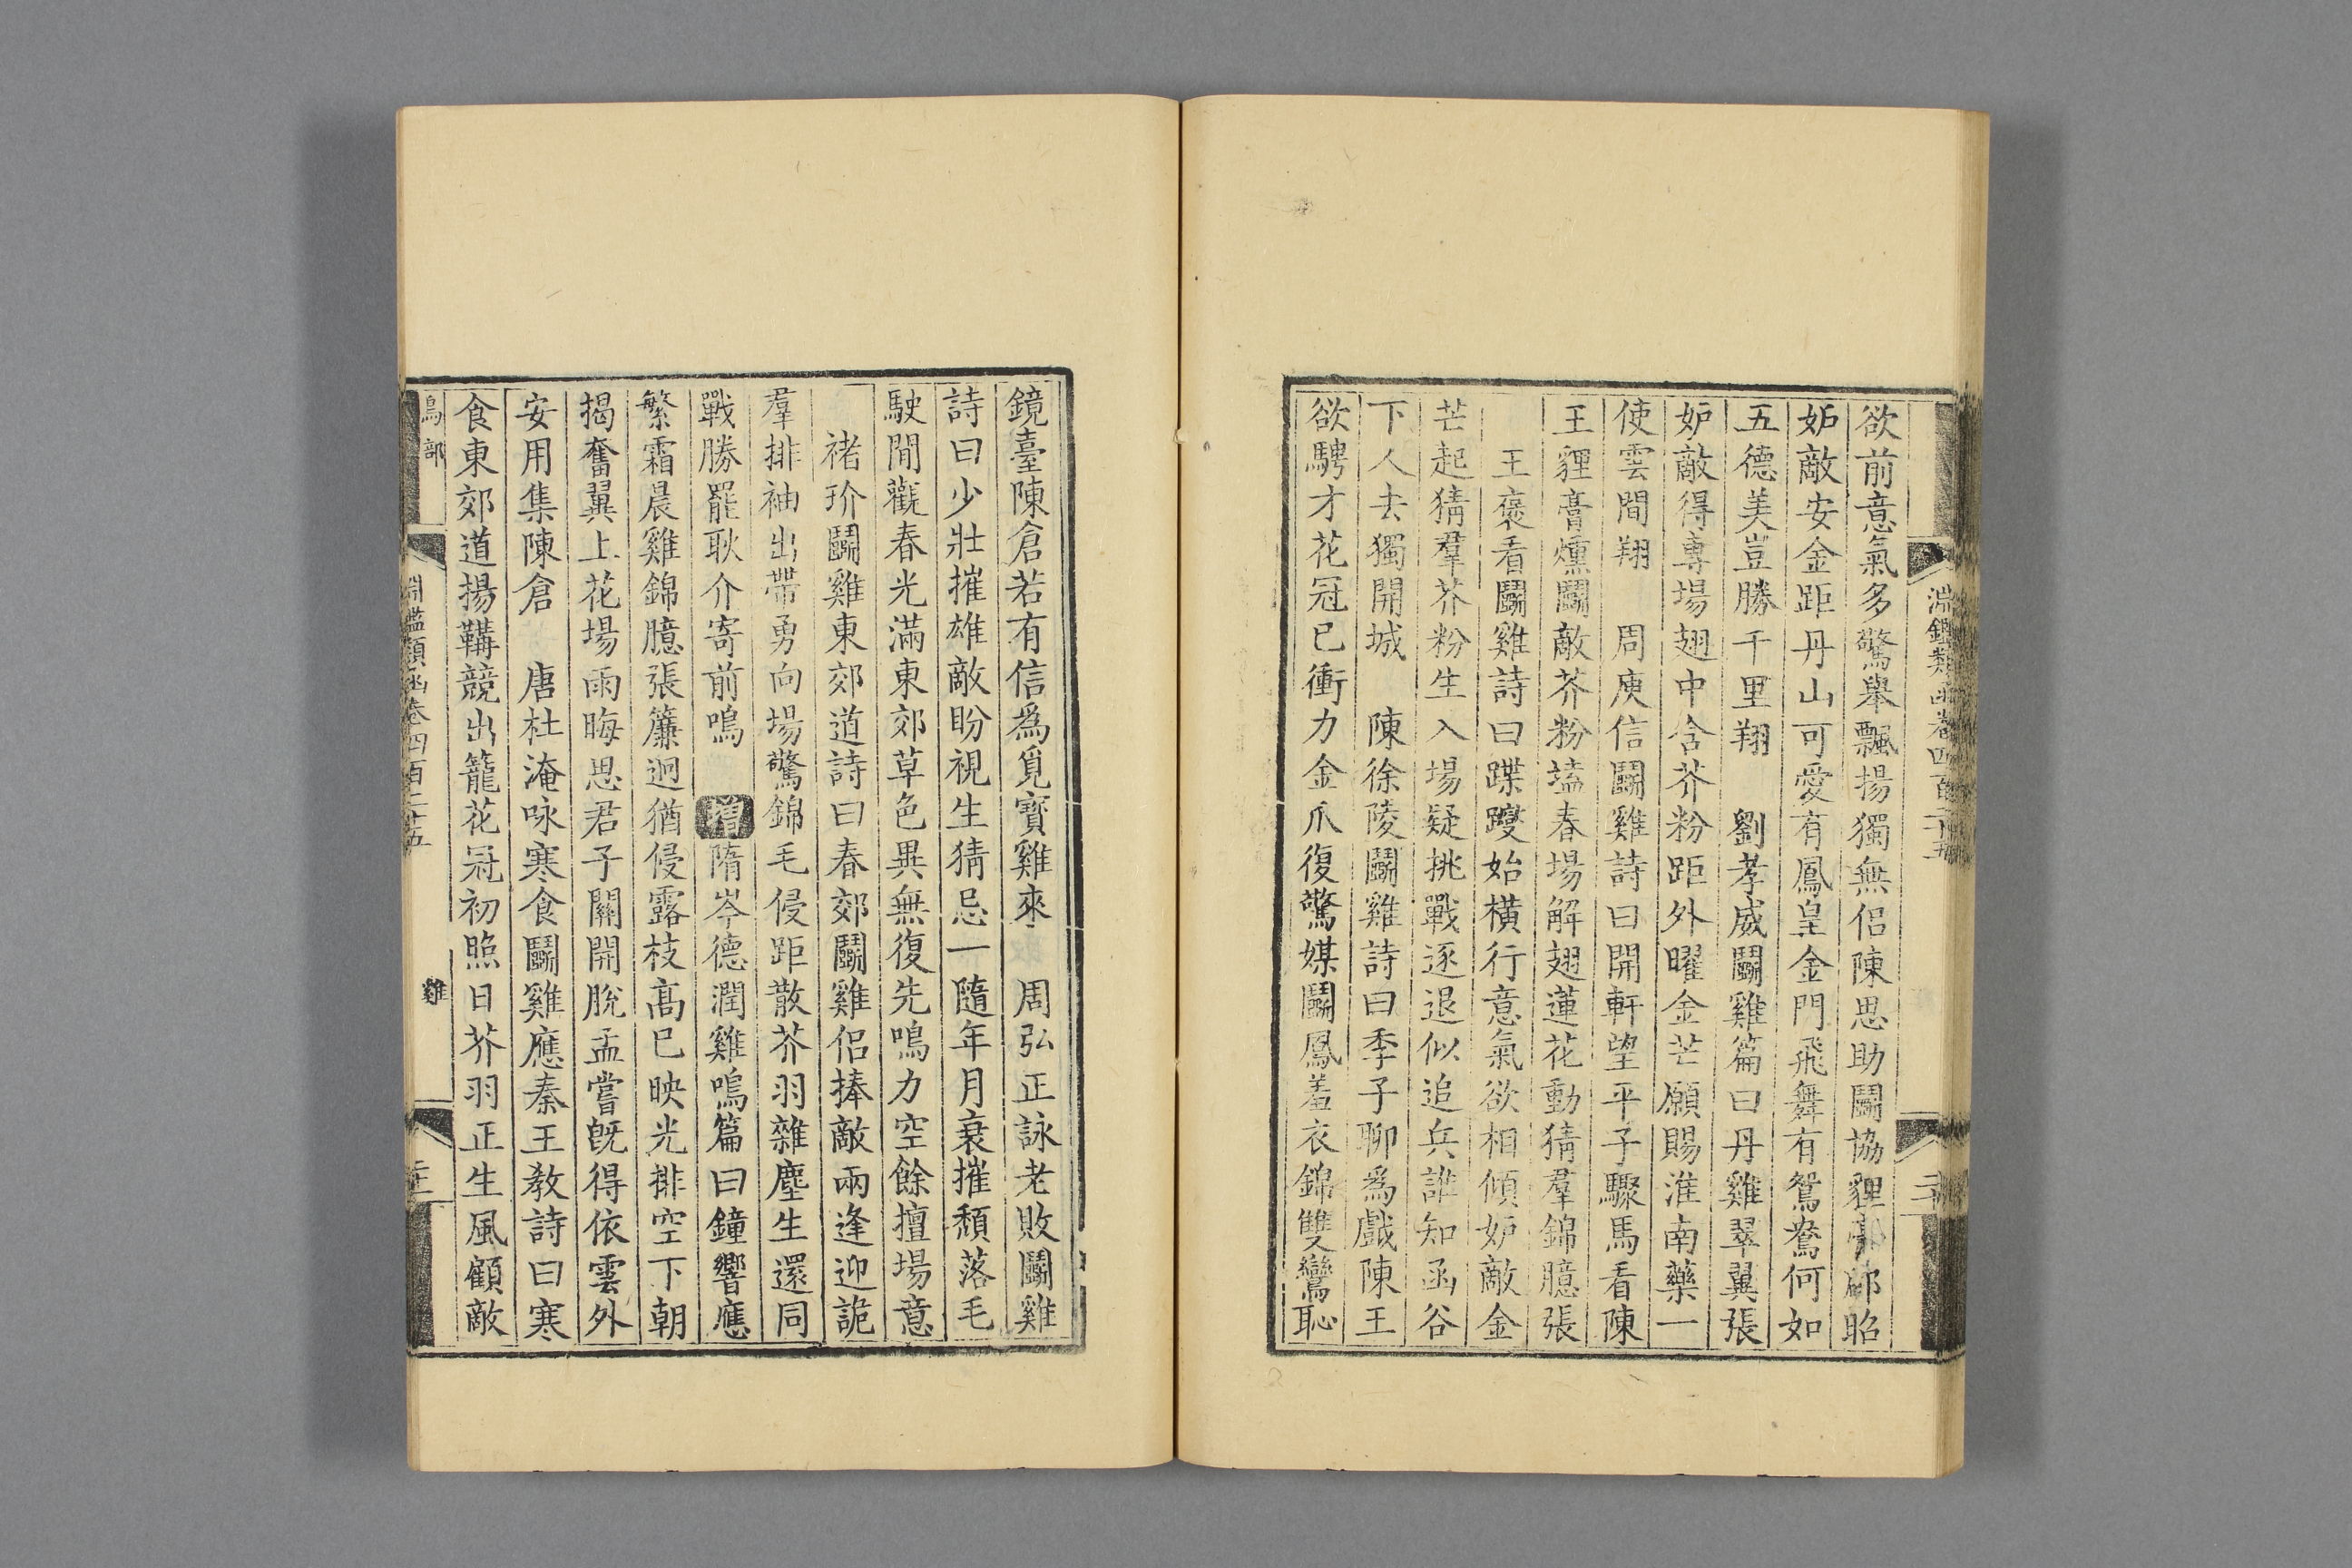 淵鑑類函卷四百二十五
二十
欲前意氣多驚舉飄揚獨無侶陳思助鬭協貍 郈昭
妬敵安金距丹山可愛有鳳皇金門飛舞有鴛鴦何如
五德美豈勝千里翔　劉孝威鬭雞篇曰丹雞翠翼張
妬敵得專場翅中含芥粉距外曜金芒願賜淮南藥一
使雲間翔　周庾信鬭雞詩曰開軒望平子驟馬看陳
王貍膏燻鬭敵芥粉壒春場解翅蓮花動猜羣錦臆張
王褒看鬭雞詩曰蹀躞始橫行意氣欲相傾妬敵金
芒起猜羣芥粉生入場疑挑戰逐退似追兵誰知函谷
下人去獨開城　陳徐陵鬭雞詩曰季子聊爲戲陳王
欲騁才花冠已衝力金爪復驚媒鬭鳳羞衣錦雙鸞恥
鏡臺陳倉若有信爲覓寶雞來　周弘正詠老敗鬭雞
詩曰少壯摧雄敵盼視生猜忌一隨年月衰摧頹落毛
駛閒觀春光滿東郊草色異無復先鳴力空餘擅場意
褚玠鬭雞東郊道詩曰春郊鬭雞侶捧敵兩逢迎詭
羣排袖出帶勇向場驚錦毛侵距散芥羽雜塵生還同
戰勝罷耿介寄前鳴　增隋岑德潤雞鳴篇曰鐘響應
繁霜晨雞錦臆張簾迥猶侵露枝高已映光排空下朝
揭奮翼上花場雨晦思君子關開脫孟嘗旣得依雲外
安用集陳倉　唐杜淹咏寒食鬭雞應秦王教詩曰寒
食東郊道揚鞲競出籠花冠初照日芥羽正生風顧敵
鳥部
淵鑑類函卷四百二十五
雞